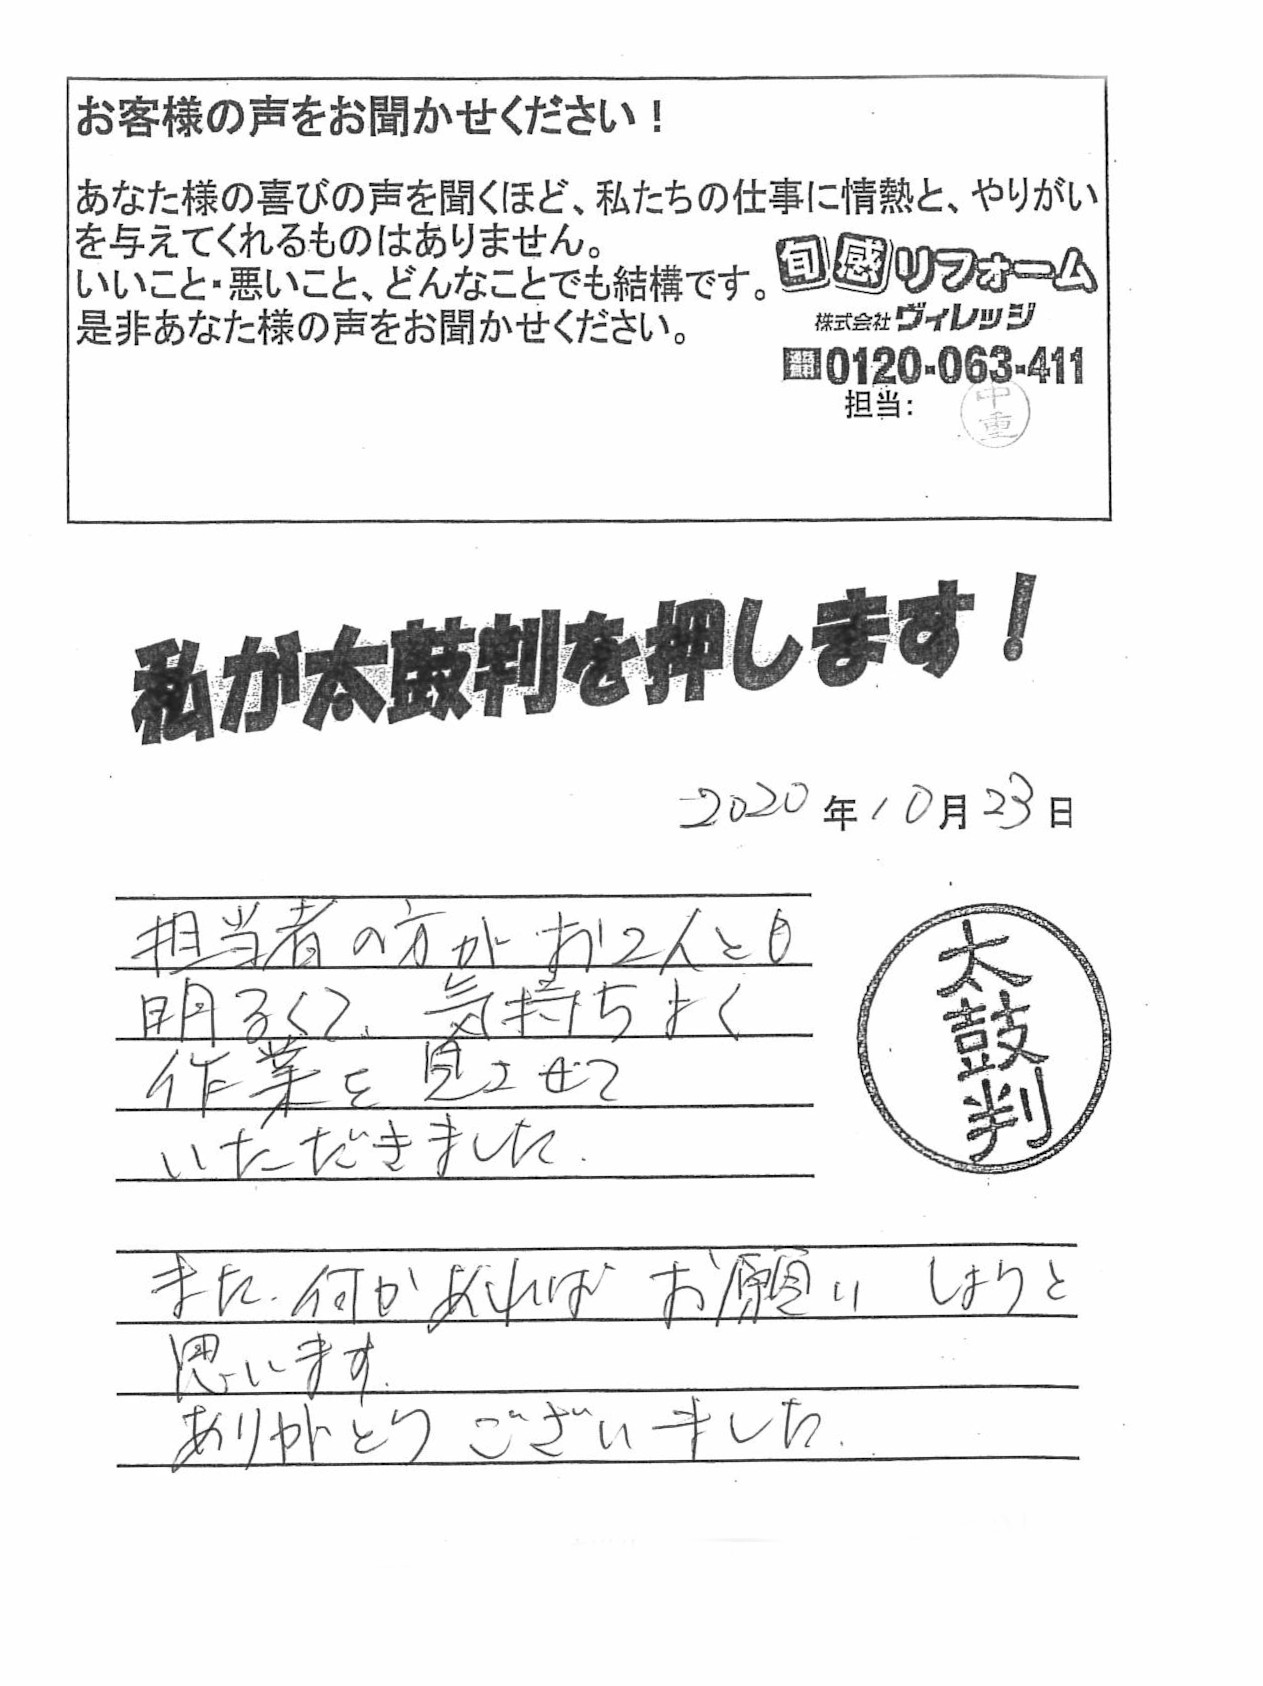 お客様の声をお聞かせください！
あなた様の喜びの声を聞くほど、私たちの仕事に情熱と、やりがい
を与えてくれるものはありません。
いいこと・悪いこと、どんなことでも結構です。
是非あなた様の声をお聞かせください。
旬感リフォーム
株式会社ヴィレッジ
通話無料0120-063-411
担当：
中重
私が太鼓判を押します！
2020年10月23日
担当者の方がお2人とも
明るくて、気持ちよく
作業を見させて
いただきました.
太鼓判
また、何かあればお願いしようと
思います.
ありがとうございました.